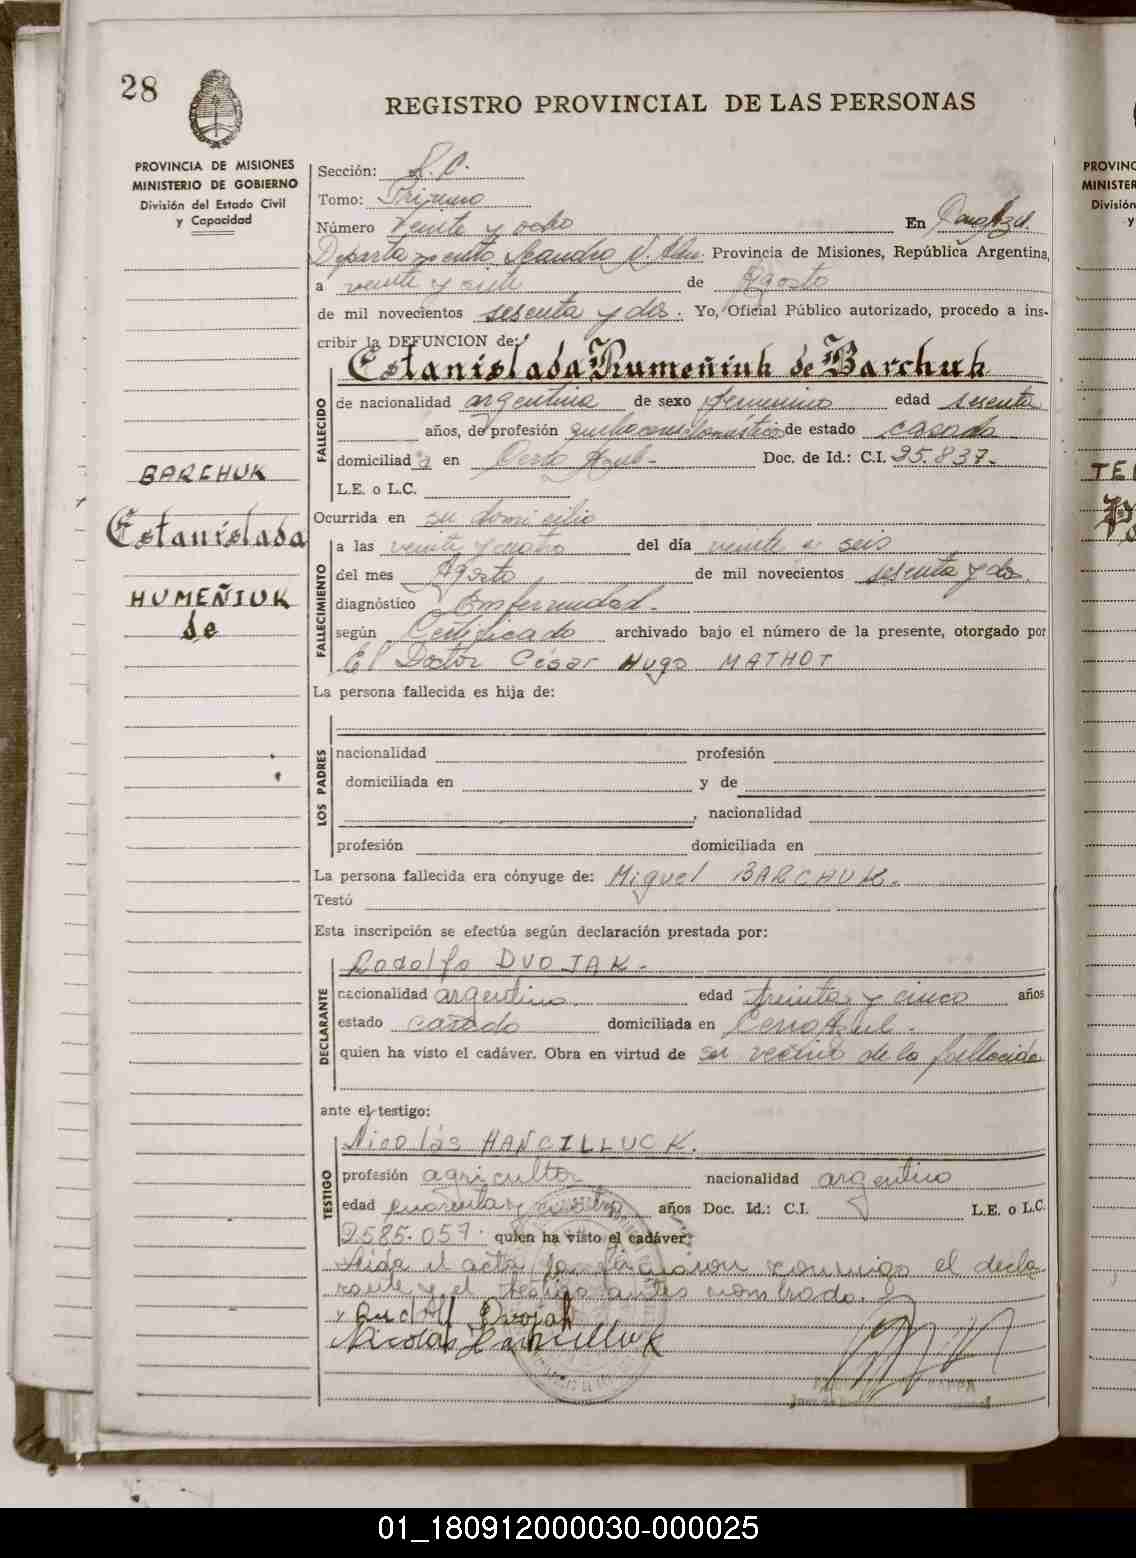 28
REGISTRO PROVINCIAL DE LAS PERSONAS
PROVINCIA DE MISIONES
MINISTERIO DE GOBIERNO
División del Estado Civil
y Capacidad
Sección:
Tomo: Primero
Número Veinte y ocho En Cerro Azul.
Departamento Leandro N. Alem. Provincia de Misiones, República Argentina,
a veinte y siete de Agosto
de mil novecientos sesenta y dos. Yo, Oficial Público autorizado, procedo a ins-
cribir la DEFUNCION de:
Estanislada Humeñiuk de Barchuk
FALLECIDO
de nacionalidad argentina de sexo femenino edad sesenta
años, de profesión quehaceres domésticos de estado casada
domiciliada en Cerro Azul- Doc. de Id.: C.I. 25.837-
L.E. o L.C.
BARCHUK
Estanislada
HUMEÑIUK
de
Ocurrida en su domicilio
FALLECIMIENTO
a las veinte y cuatro del día veinte e seis
del mes Agosto de mil novecientos sesenta y dos.
diagnóstico Enfermedad.
según Certificado archivado bajo el número de la presente, otorgado por
El Doctor César Hugo MATHOT
La persona fallecida es hija de:
LOS PADRES
nacionalidad profesión
domiciliada en y de
, nacionalidad
profesión domiciliada en
La persona fallecida era cónyuge de: Miguel BARCHUK.
Testó
Esta inscripción se efectúa según declaración prestada por:
DECLARANTE
Rodolfo DVOJAK-
nacionalidad argentino. edad treinta y cinco años
estado casado domiciliada en Cerro Azul.
quien ha visto el cadáver. Obra en virtud de ser vecino de la fallecida
ante el testigo:
TESTIGO
Nicolás HANCILLUCK.
profesión agricultor nacionalidad argentino
edad cuarenta y cuatro años Doc. Id.: C.I. L.E. o L.C.
2585.057. quien ha visto el cadáver.
Leida el acta la firmaron conmigo el decla
rante y el testigo antes nombrado.
Rudolf Dvojak
Nicolas Hancilluk
PROVINC
MINISTER
División
y
01_180912000030-000025